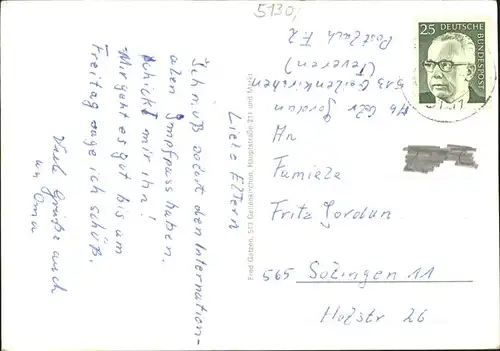 5130,
Liebe Eltern
Ich muß sofort den Internation-
alen Impfpass haben.
Schickt mir ihn!
Mir geht es gut bis am
Freitag sage ich schüß.
Viele Grüße auch
an Oma
Fred Gatzen, 513 Geilenkirchen, Hauptstraße 211 und Markt
Jordan
513 Geilenkirchen
(Teveren)
Postfach F2
25 DEUTSCHE
BUNDESPOST
An
Familie
Fritz Jordan
565 Solingen 11
Holzstr 26